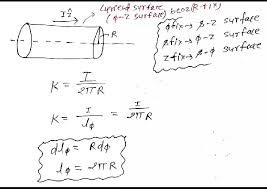 I ẑ
current surface
(φ-z surface) bcoz(R fix)
φ fix → s-z surface
s fix → φ-z surface
z fix → s-φ surface
R
K = I / 2πR
K = I / lφ = I / 2πR
dlφ = Rdφ
lφ = 2πR